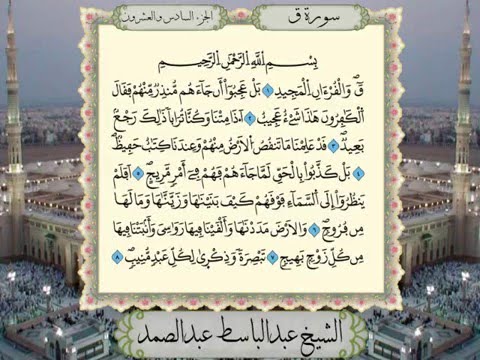 سورة ق
الجزء السادس والعشرون
بِسْمِ اللَّهِ الرَّحْمَٰنِ الرَّحِيمِ
قٓ وَالْقُرْءَانِ الْمَجِيدِ ١ بَلْ عَجِبُوٓا أَن جَآءَهُم مُّنذِرٌ مِّنْهُمْ فَقَالَ
الْكَٰفِرُونَ هَٰذَا شَيْءٌ عَجِيبٌ ٢ أَ۟ذَا مِتْنَا وَكُنَّا تُرَابًا ذَٰلِكَ رَجْعٌ
بَعِيدٌ ٣ قَدْ عَلِمْنَا مَا تَنقُصُ الْأَرْضُ مِنْهُمْ وَعِندَنَا كِتَٰبٌ حَفِيظٌ
٤ بَلْ كَذَّبُوا بِالْحَقِّ لَمَّا جَآءَهُمْ فَهُمْ فِي أَمْرٍ مَّرِيجٍ ٥ أَفَلَمْ
يَنظُرُوٓا إِلَى السَّمَآءِ فَوْقَهُمْ كَيْفَ بَنَيْنَٰهَا وَزَيَّنَّٰهَا وَمَا لَهَا
مِن فُرُوجٍ ٦ وَالْأَرْضَ مَدَدْنَٰهَا وَأَلْقَيْنَا فِيهَا رَوَٰسِيَ وَأَنۢبَتْنَا فِيهَا
مِن كُلِّ زَوْجٍ بَهِيجٍ ٧ تَبْصِرَةً وَذِكْرَىٰ لِكُلِّ عَبْدٍ مُّنِيبٍ ٨
الشيخ عبدالباسط عبدالصمد